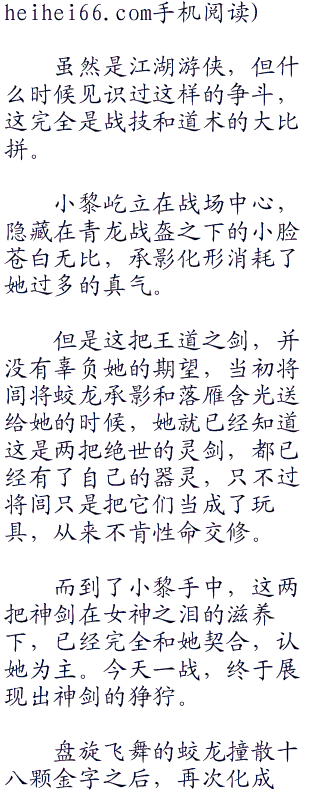 heihei66.com手机阅读)
虽然是江湖游侠，但什
么时候见识过这样的争斗，
这完全是战技和道术的大比
拼。
小黎屹立在战场中心，
隐藏在青龙战盔之下的小脸
苍白无比，承影化形消耗了
她过多的真气。
但是这把王道之剑，并
没有辜负她的期望，当初将
闾将蛟龙承影和落雁含光送
给她的时候，她就已经知道
这是两把绝世的灵剑，都已
经有了自己的器灵，只不过
将闾只是把它们当成了玩
具，从来不肯性命交修。
而到了小黎手中，这两
把神剑在女神之泪的滋养
下，已经完全和她契合，认
她为主。今天一战，终于展
现出神剑的狰狞。
盘旋飞舞的蛟龙撞散十
八颗金字之后，再次化成